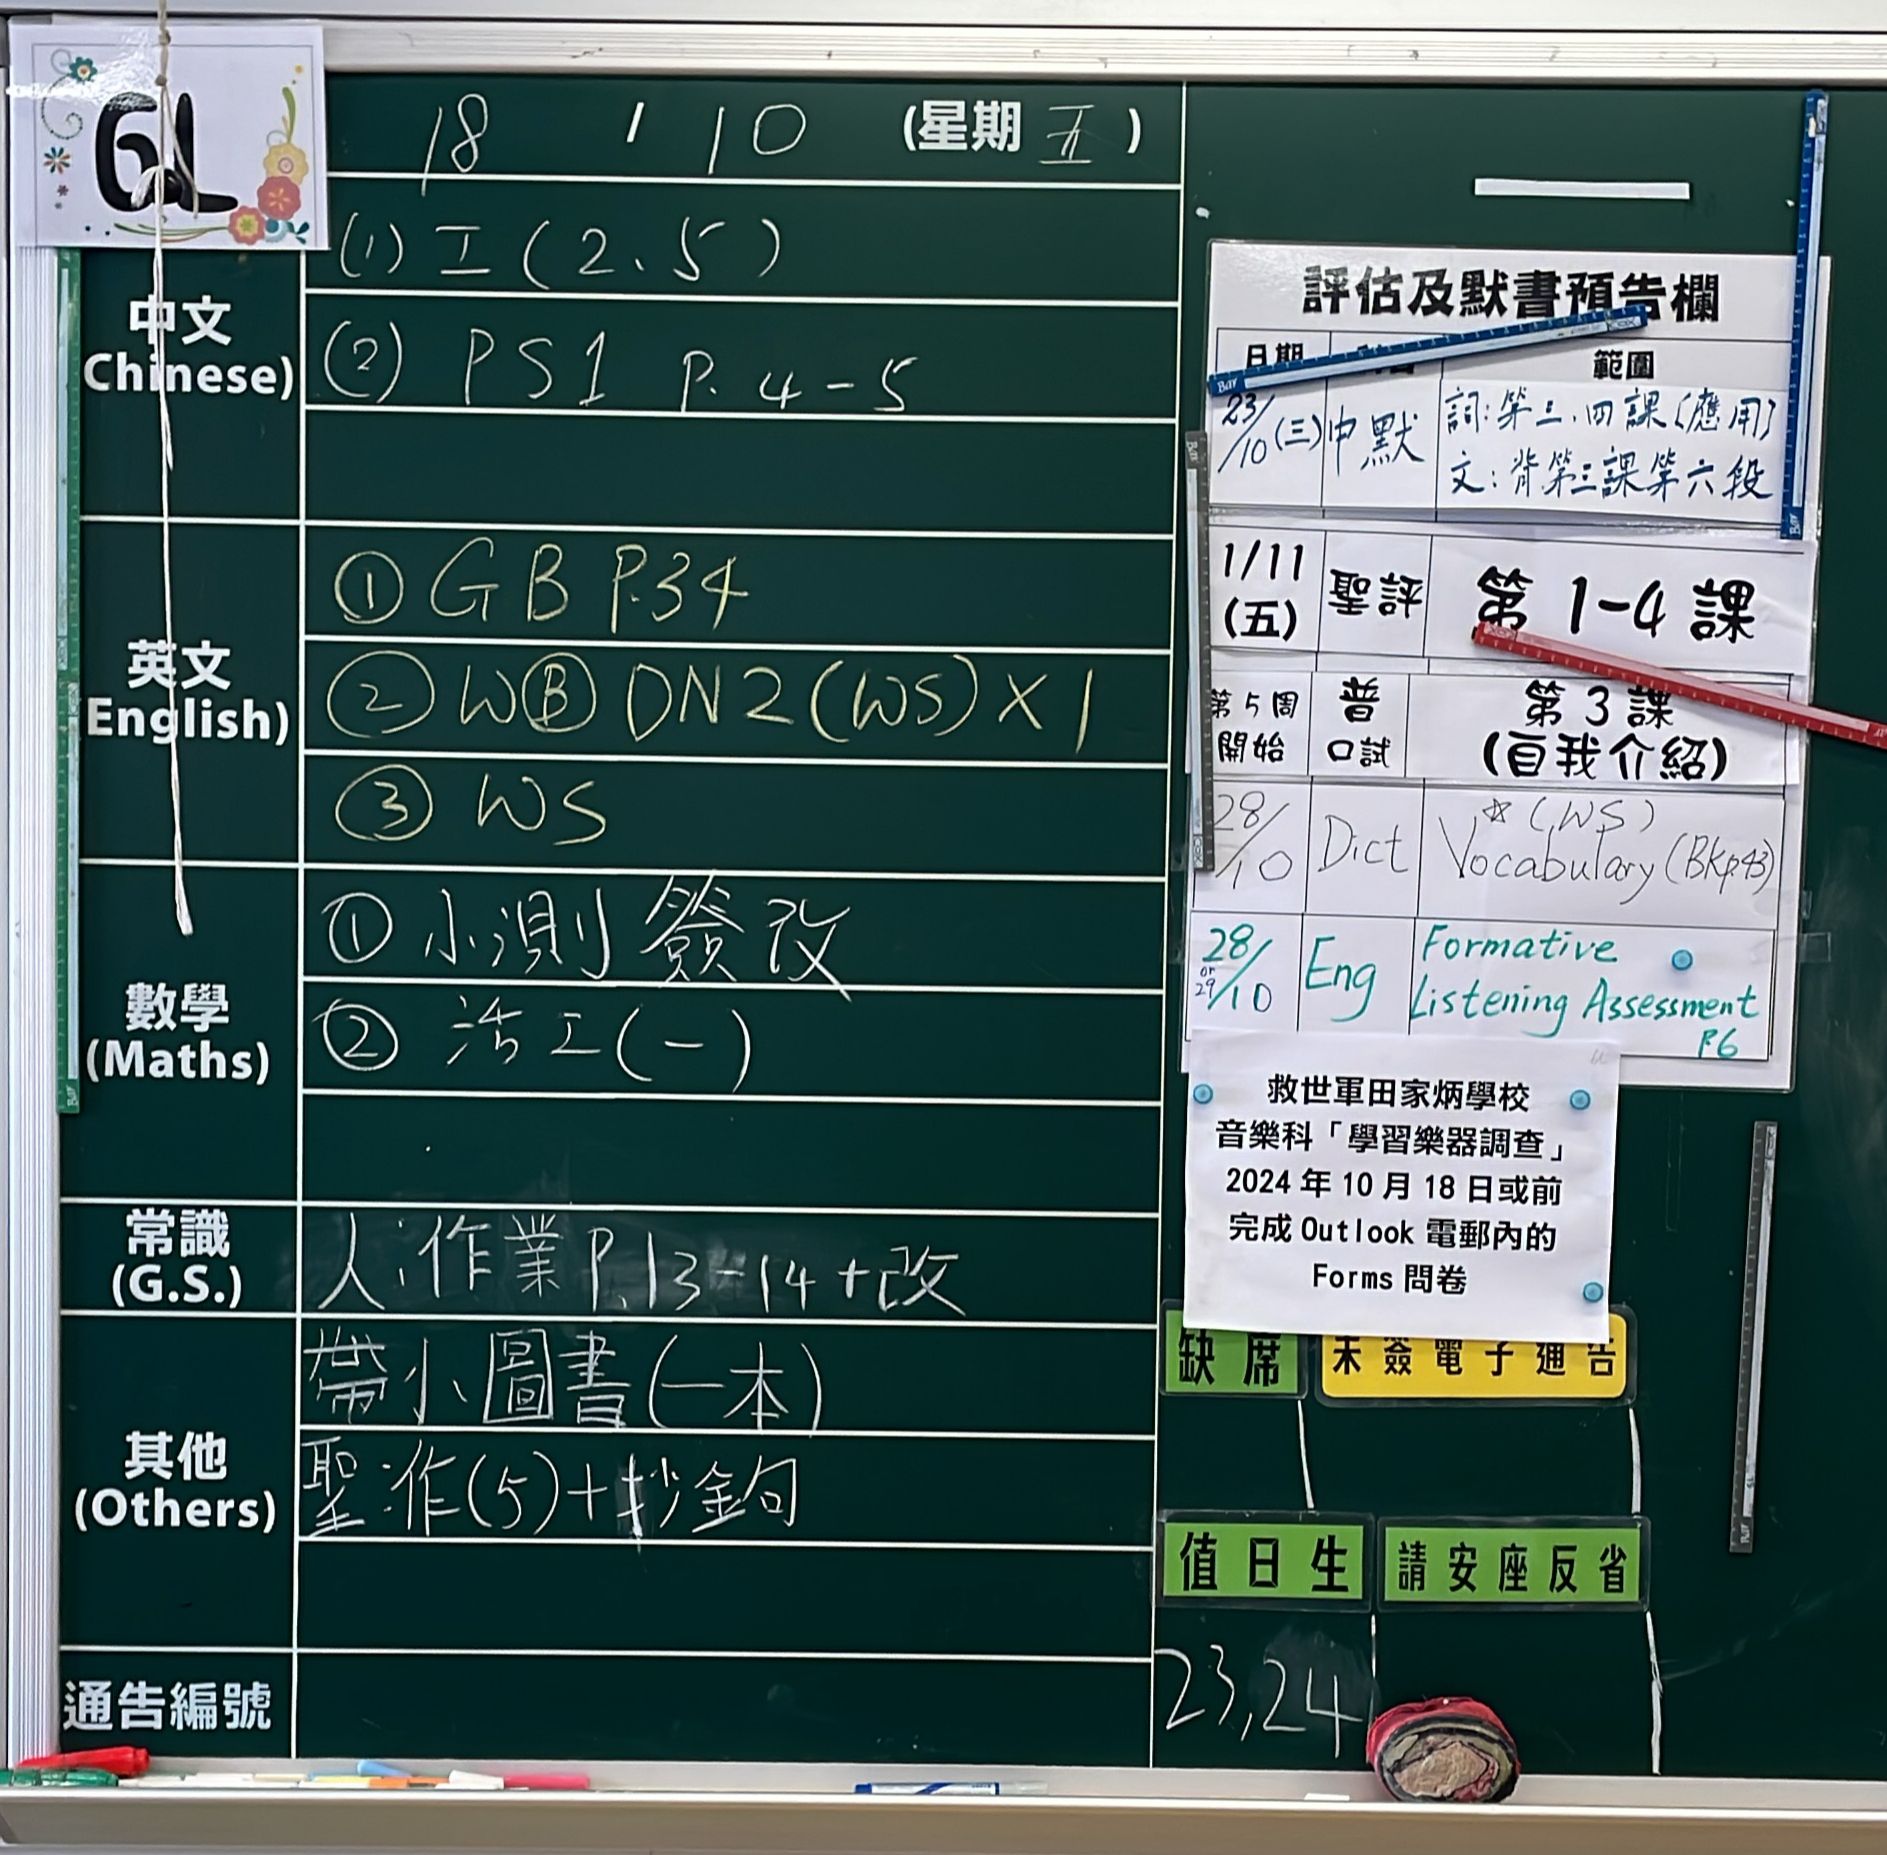 6L
18 / 10 (星期 五)
中文
Chinese)
(1) 工 (2、5)
(2) PS1 P. 4-5
英文
English)
① GB P.34
② W Ⓑ DN2 (WS) X 1
③ WS
數學
(Maths)
① 小測 簽 改
② 活工 (一)
常識
(G.S.)
人:作業 P.13-14+改
其他
(Others)
帶小圖書(一本)
聖:作(5)+抄金句
通告編號
評估及默書預告欄
日期 範圍
23/10 (三) 中默 詞:第三、四課(應用)
文:背第三課第六段
1/11
(五) 聖評 第 1-4 課
第5周
開始 普
口試 第3課
(自我介紹)
28/10 Dict *(WS)
Vocabulary (BKp43)
28/10
or
29 Eng Formative
Listening Assessment
P.6
救世軍田家炳學校
音樂科「學習樂器調查」
2024 年 10 月 18 日或前
完成 Outlook 電郵內的
Forms 問卷
缺席 未簽電子通告
值日生 請安座反省
23,24